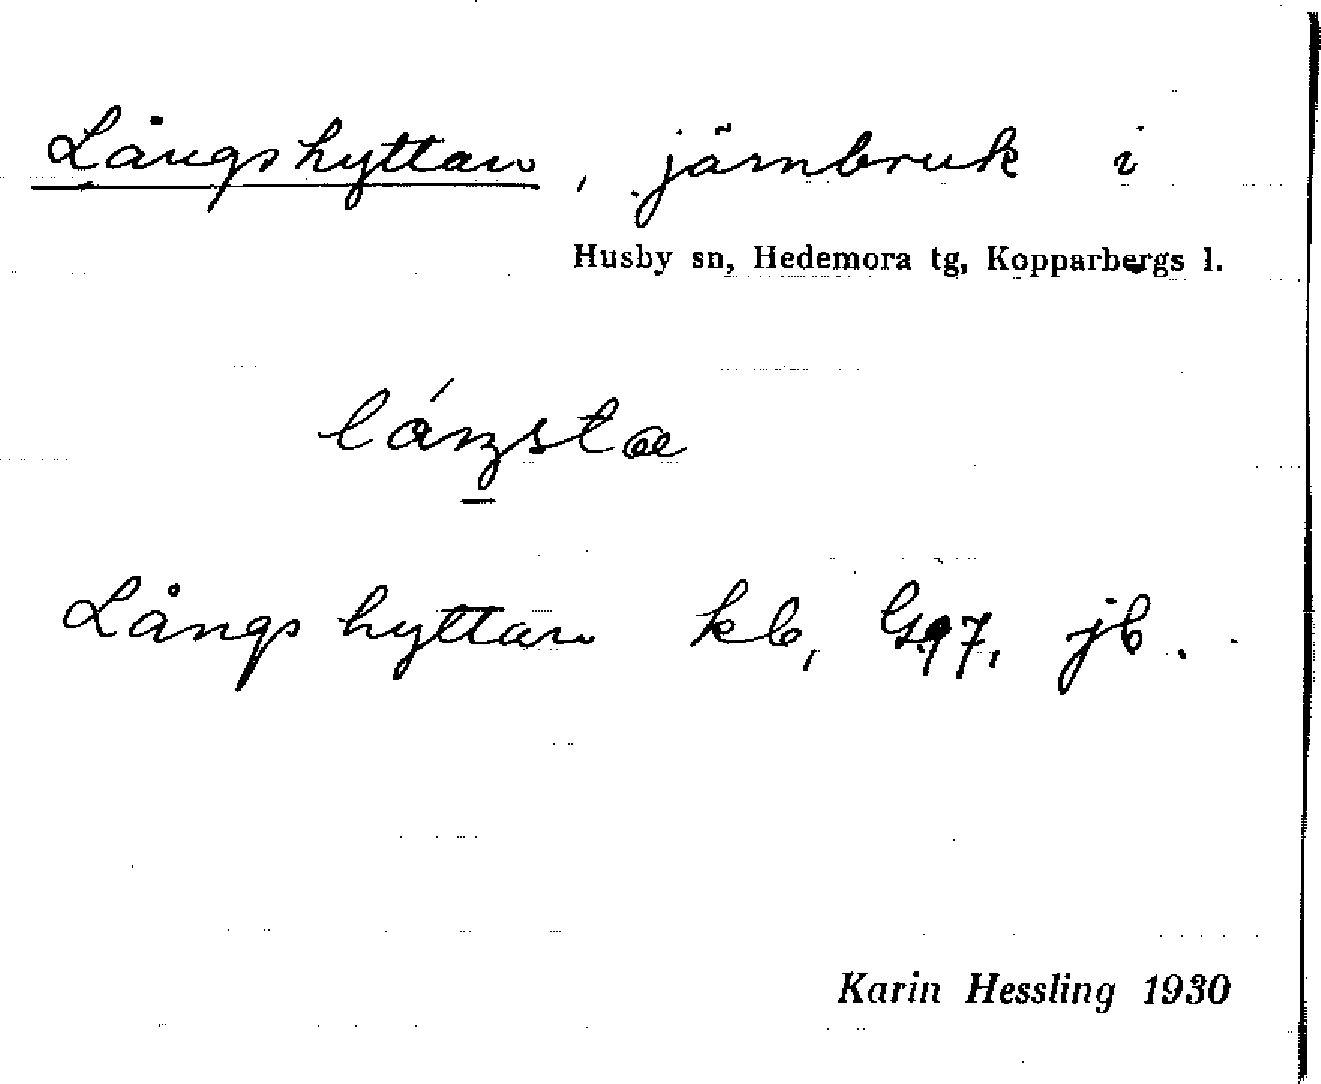 Långshyttan, järnbruk i
Husby sn, Hedemora tg, Kopparbergs l.
Långshyttan kb, G97, jb.
Karin Hessling 1930